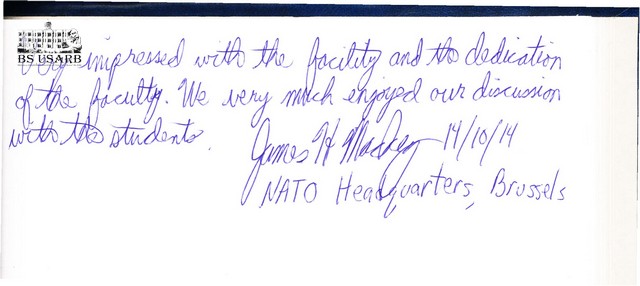 BS USARB
Very impressed with the facility and the dedication
of the faculty. We very much enjoyed our discussion
with the students.
James H Mackey 14/10/14
NATO Headquarters, Brussels